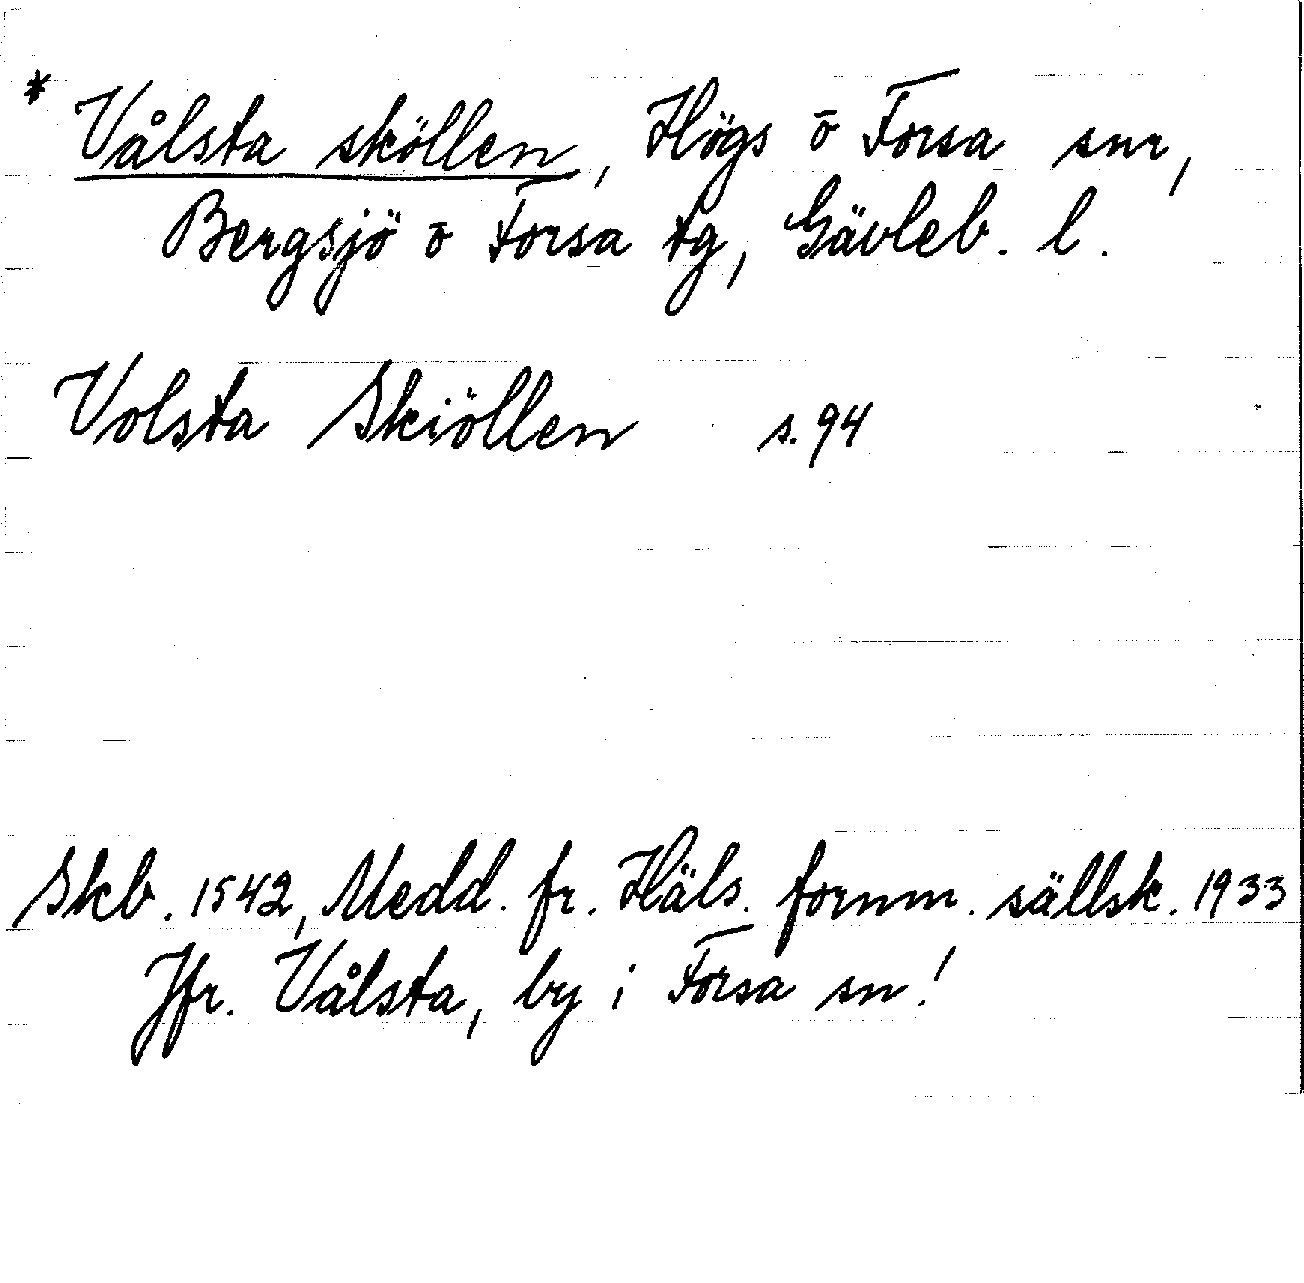 * Vålsta sköllen, Högs o Forsa snr,
Bergsjö o Forsa tg, Gävleb. l.
Volsta Skiöllen s. 94
Skb. 1542, Medd. fr. Häls. fornm. sällsk. 1933
Jfr. Vålsta, by i Forsa sn!